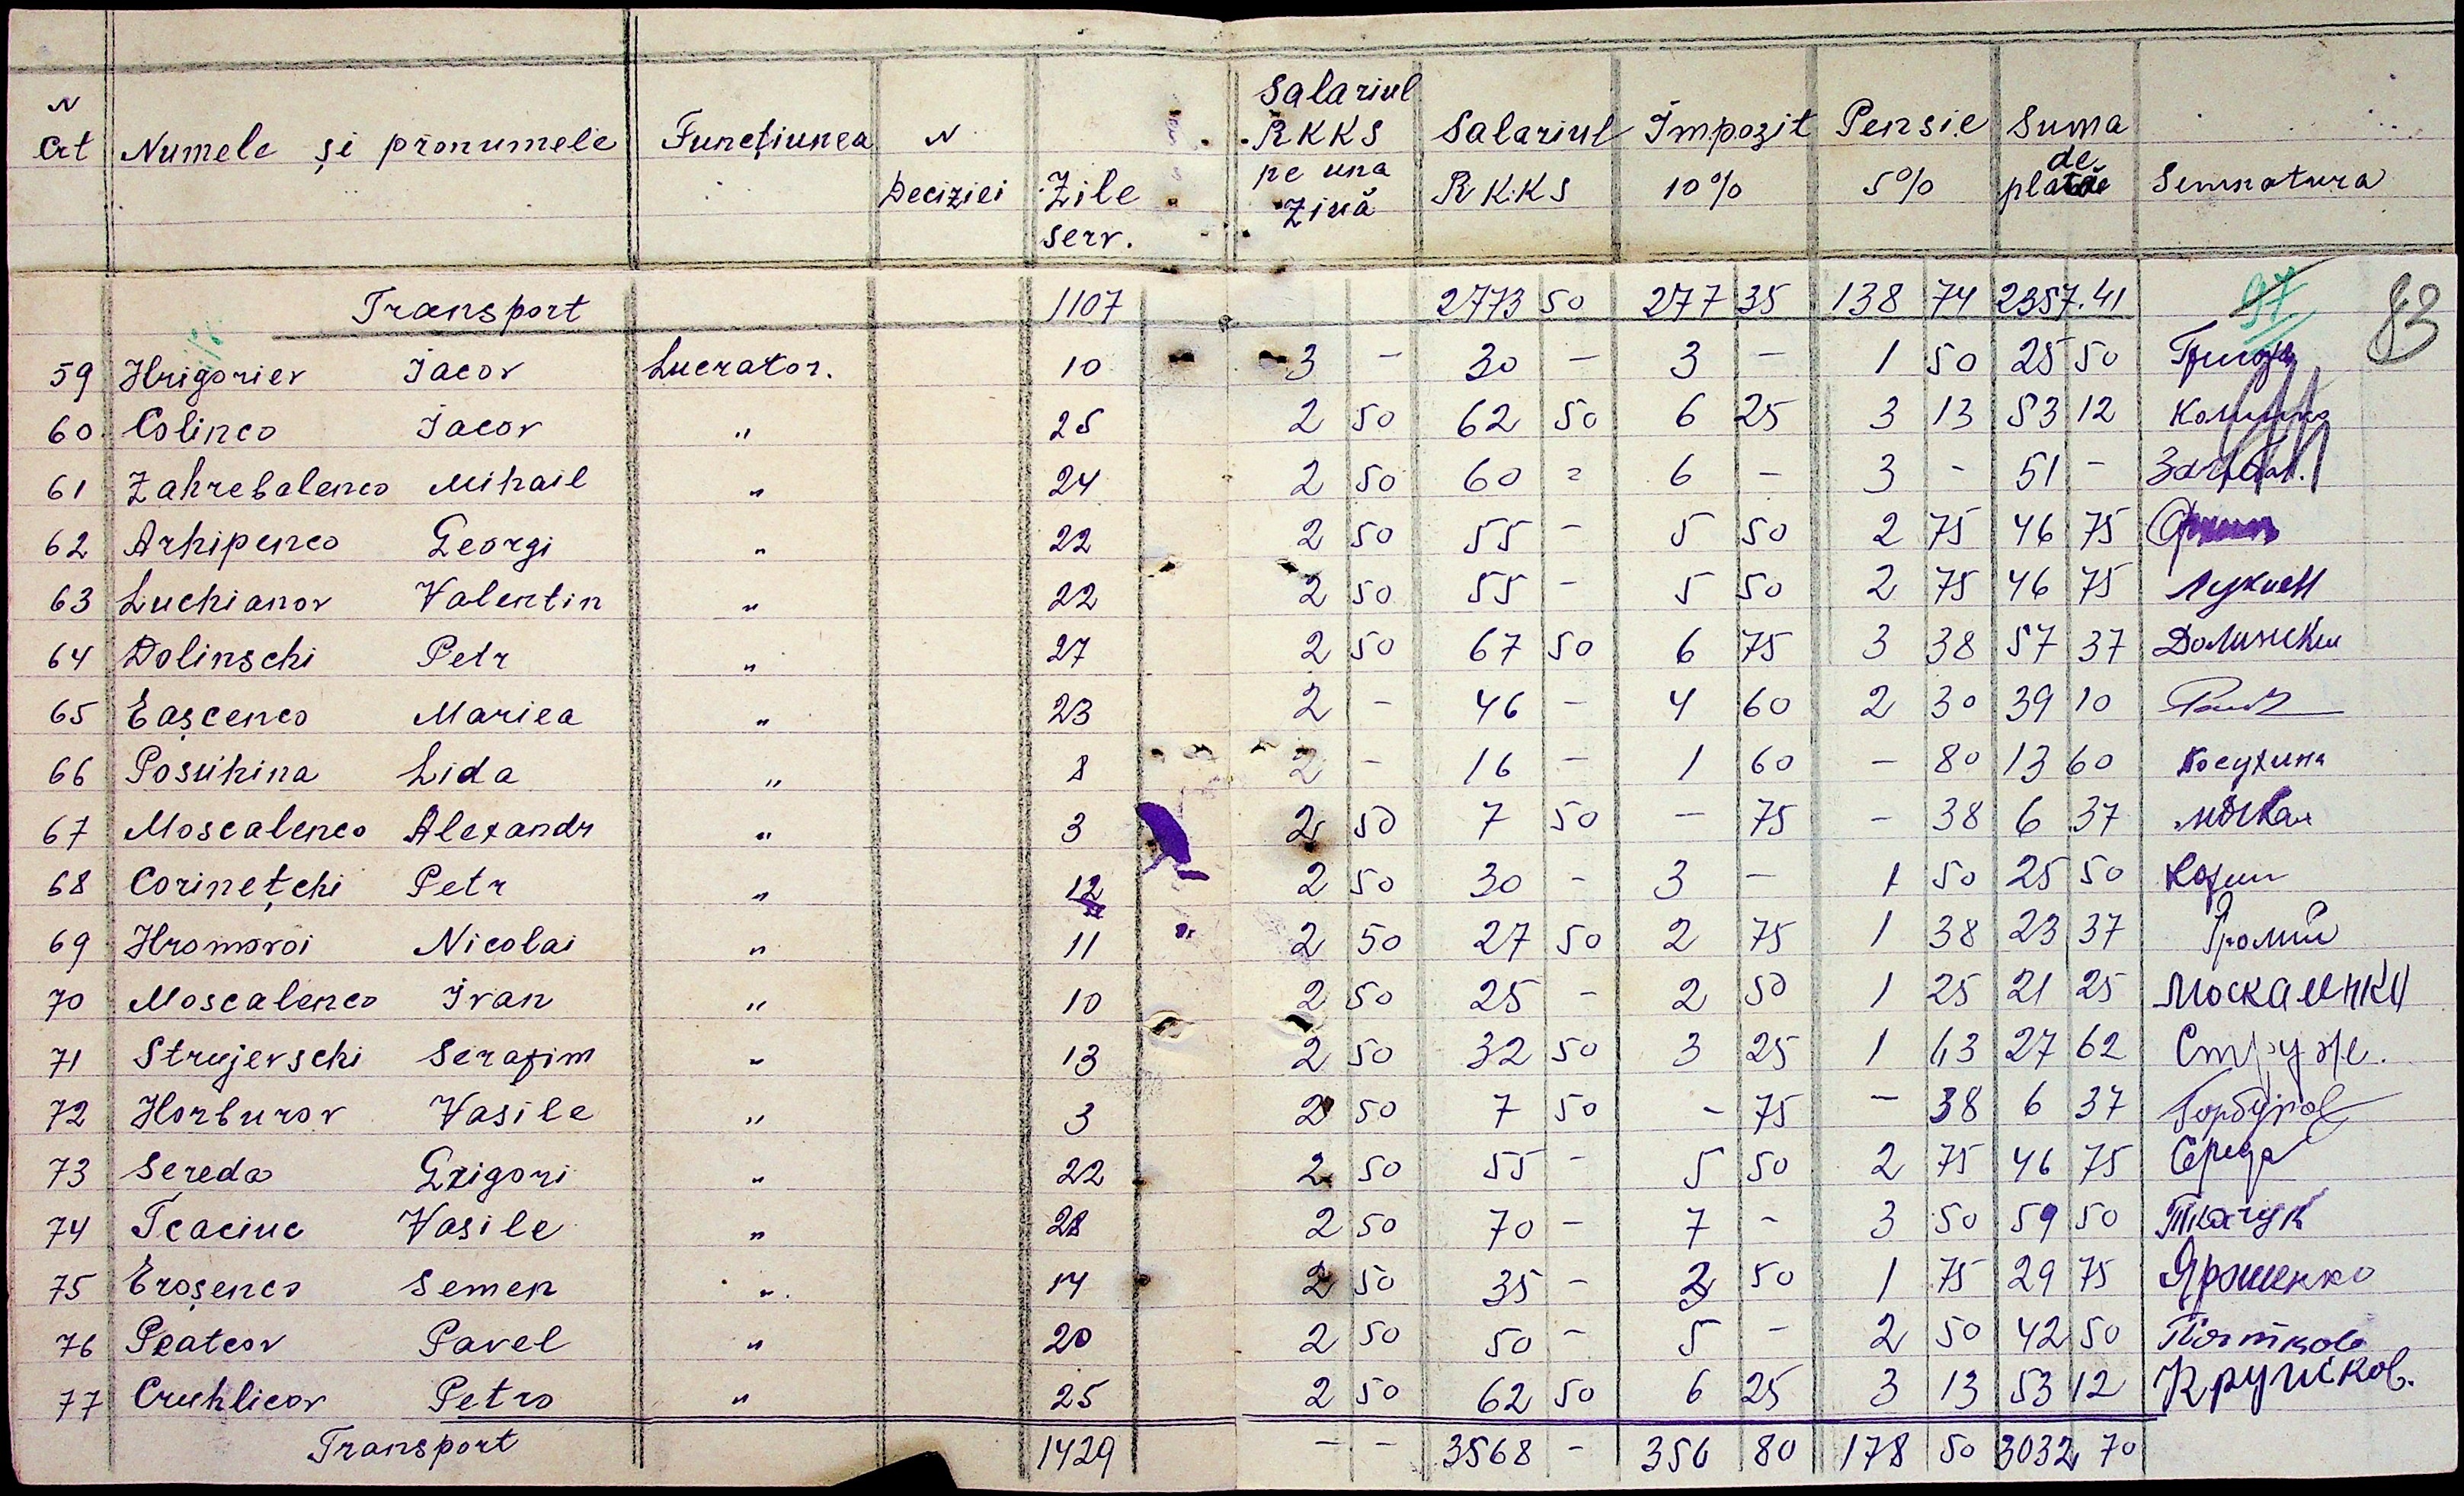 N Crt Numele și pronumele Funcțiunea N Deciziei Zile serv. Salariul RKKS pe una ziuă Salariul RKKS Impozit 10% Pensie 5% Suma de plată Semnatura
Transport 1107 2773 50 277 35 138 74 2357.41 97 83
59 Hrigoriev Iacov Lucrator. 10 3 - 30 - 3 - 1 50 25 50
60 Colinco Iacov " 25 2 50 62 50 6 25 3 13 53 12
61 Zahrebalenco Mihail " 24 2 50 60 = 6 - 3 - 51 -
62 Arhipenco Georgi " 22 2 50 55 - 5 50 2 75 46 75
63 Luchianov Valentin " 22 2 50 55 - 5 50 2 75 46 75 Лукиен
64 Dolinschi Petr " 27 2 50 67 50 6 75 3 38 57 37 Долински
65 Eașcenco Mariea " 23 2 - 46 - 4 60 2 30 39 10
66 Posuhina Lida " 8 2 - 16 - 1 60 - 80 13 60 Посухина
67 Moscalenco Alexandr " 3 2 50 7 50 - 75 - 38 6 37
68 Corinețchi Petr " 12 2 50 30 - 3 - 1 50 25 50
69 Hromovoi Nicolai " 11 2 50 27 50 2 75 1 38 23 37
70 Moscalenco Ivan " 10 2 50 25 - 2 50 1 25 21 25
71 Strujevschi Serafim " 13 2 50 32 50 3 25 1 63 27 62 Струже.
72 Horburov Vasile " 3 2 50 7 50 - 75 - 38 6 37 Горбуров
73 Sereda Grigori " 22 2 50 55 - 5 50 2 75 46 75 Середа
74 Tcaciuc Vasile " 28 2 50 70 - 7 - 3 50 59 50 Ткачук
75 Eroșenco Semen " 14 2 50 35 - 3 50 1 75 29 75 Ярошенко
76 Peatcov Pavel " 20 2 50 50 - 5 - 2 50 42 50 Пятков
77 Cruhlicov Petro " 25 2 50 62 50 6 25 3 13 53 12
Transport 1429 - - 3568 - 356 80 178 50 3032 70